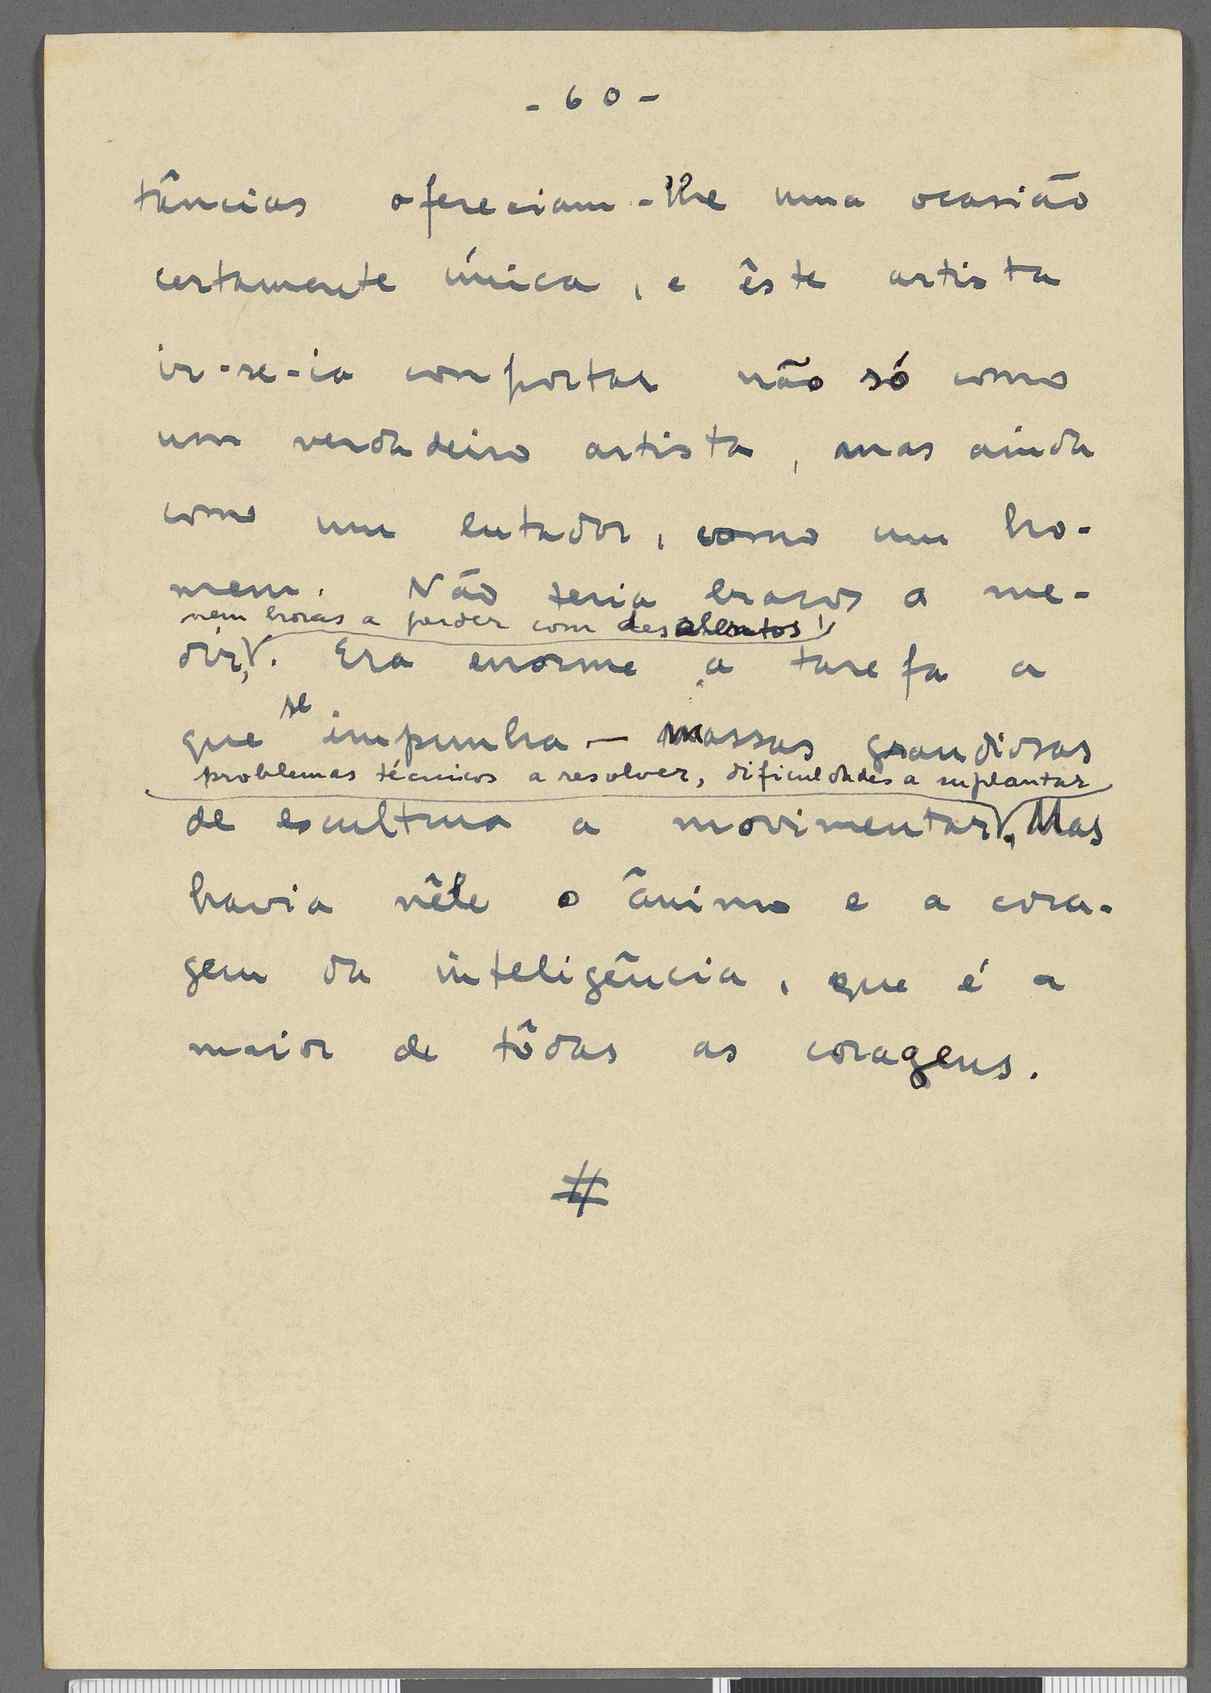 - 60 -
tâncias ofereciam-lhe uma ocasião
certamente única, e êste artista
ir-se-ia comportar não só como
um verdadeiro artista, mas ainda
como um lutador, como um ho-
mem. Não teria braços a me-
nem horas a perder com desalentos!
dir,V. Era enorme a tarefa a
se
que impunha — massas grandiosas
problemas técnicos a resolver, dificuldades a suplantar
de escultura a movimentarV. Mas
havia nêle o ânimo e a cora-
gem da inteligência, que é a
maior de tôdas as coragens.
#